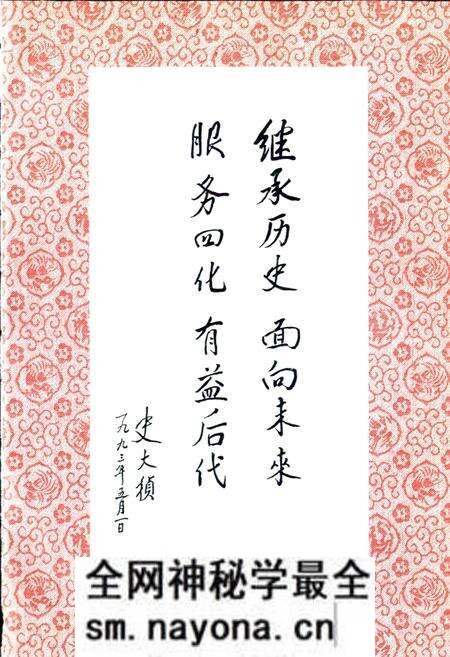 继承历史 面向未來
服务四化 有益后代
史大桢
一九九三年五月一日
全网神秘学最全
sm.nayona.cn